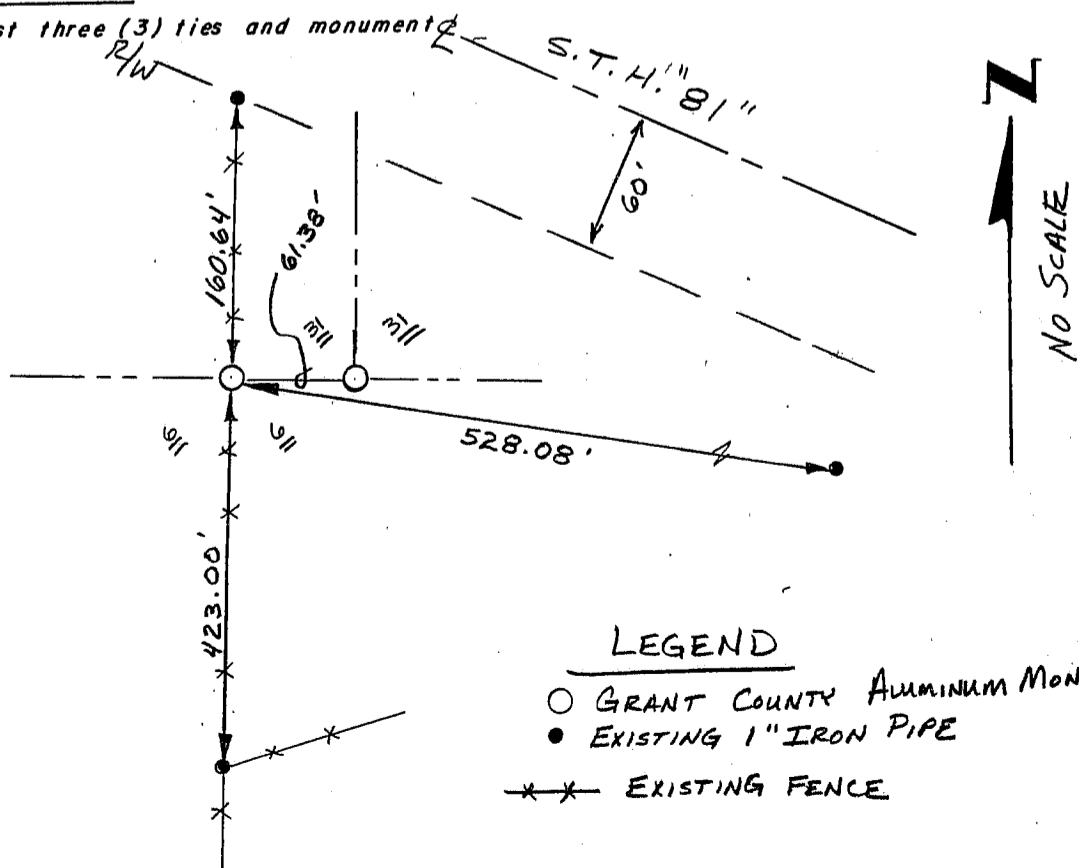 st three (3) ties and monument
℄
R/W
S.T.H. "81"
60'
NO SCALE
160.64'
61.38'
528.08'
423.00'
LEGEND
GRANT COUNTY ALUMINUM MON
EXISTING 1" IRON PIPE
EXISTING FENCE